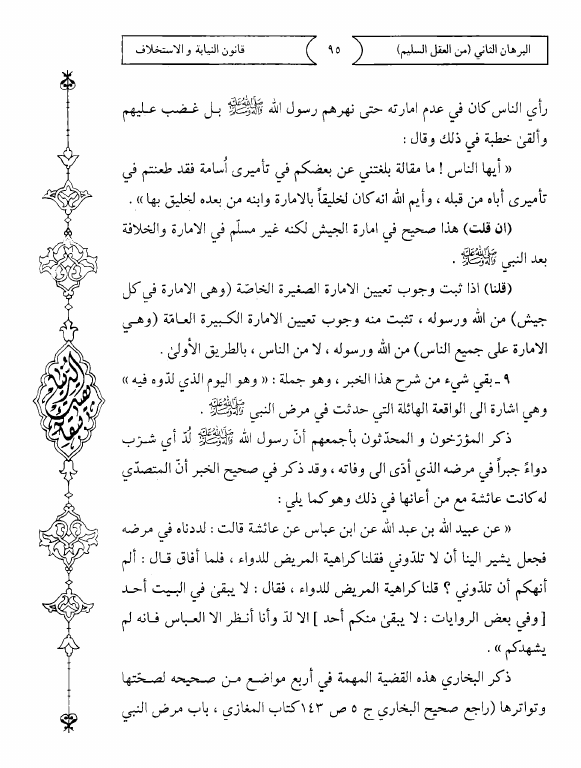 البرهان الثاني (من العقل السليم)
٩٥
قانون النيابة و الاستخلاف
رأي الناس كان في عدم امارته حتى نهرهم رسول الله ﷺ بل غضب عليهم
وألقىٰ خطبة في ذلك وقال :
« أيها الناس ! ما مقالة بلغتني عن بعضكم في تأميرى أُسامة فقد طعنتم في
تأميرى أباه من قبله ، وأيم الله انه كان لخليقاً بالامارة وابنه من بعده لخليق بها » .
(ان قلت) هذا صحيح في امارة الجيش لكنه غير مسلّم في الامارة والخلافة
بعد النبي ﷺ .
(قلنا) اذا ثبت وجوب تعيين الامارة الصغيرة الخاصّة (وهى الامارة في كل
جيش) من الله ورسوله ، تثبت منه وجوب تعيين الامارة الكبيرة العامّة (وهـي
الامارة على جميع الناس) من الله ورسوله ، لا من الناس ، بالطريق الأولىٰ .
٩ ـ بقي شيء من شرح هذا الخبر ، وهو جملة : « وهو اليوم الذي لدّوه فيه »
وهي اشارة الى الواقعة الهائلة التي حدثت في مرض النبي ﷺ .
ذكر المؤرّخون و المحدّثون بأجمعهم أنّ رسول الله ﷺ لُدّ أي شرّب
دواءً جبراً في مرضه الذي أدّى الى وفاته ، وقد ذكر في صحيح الخبر أنّ المتصدّي
له كانت عائشة مع من أعانها في ذلك وهو كما يلي :
« عن عبيد الله بن عبد الله عن ابن عباس عن عائشة قالت : لددناه في مرضه
فجعل يشير الينا أن لا تلدّوني فقلنا كراهية المريض للدواء ، فلما أفاق قـال : ألم
أنهكم أن تلدّوني ؟ قلنا كراهية المريض للدواء ، فقال : لا يبقىٰ في البـيت أحـد
[ وفي بعض الروايات : لا يبقىٰ منكم أحد ] الا لدّ وأنا أنـظر الا العـباس فـانه لم
يشهدكم » .
ذكر البخاري هذه القضية المهمة في أربع مواضـع مـن صحيحه لصحّتها
وتواترها (راجع صحيح البخاري ج ٥ ص ١٤٣ كتاب المغازي ، باب مرض النبي